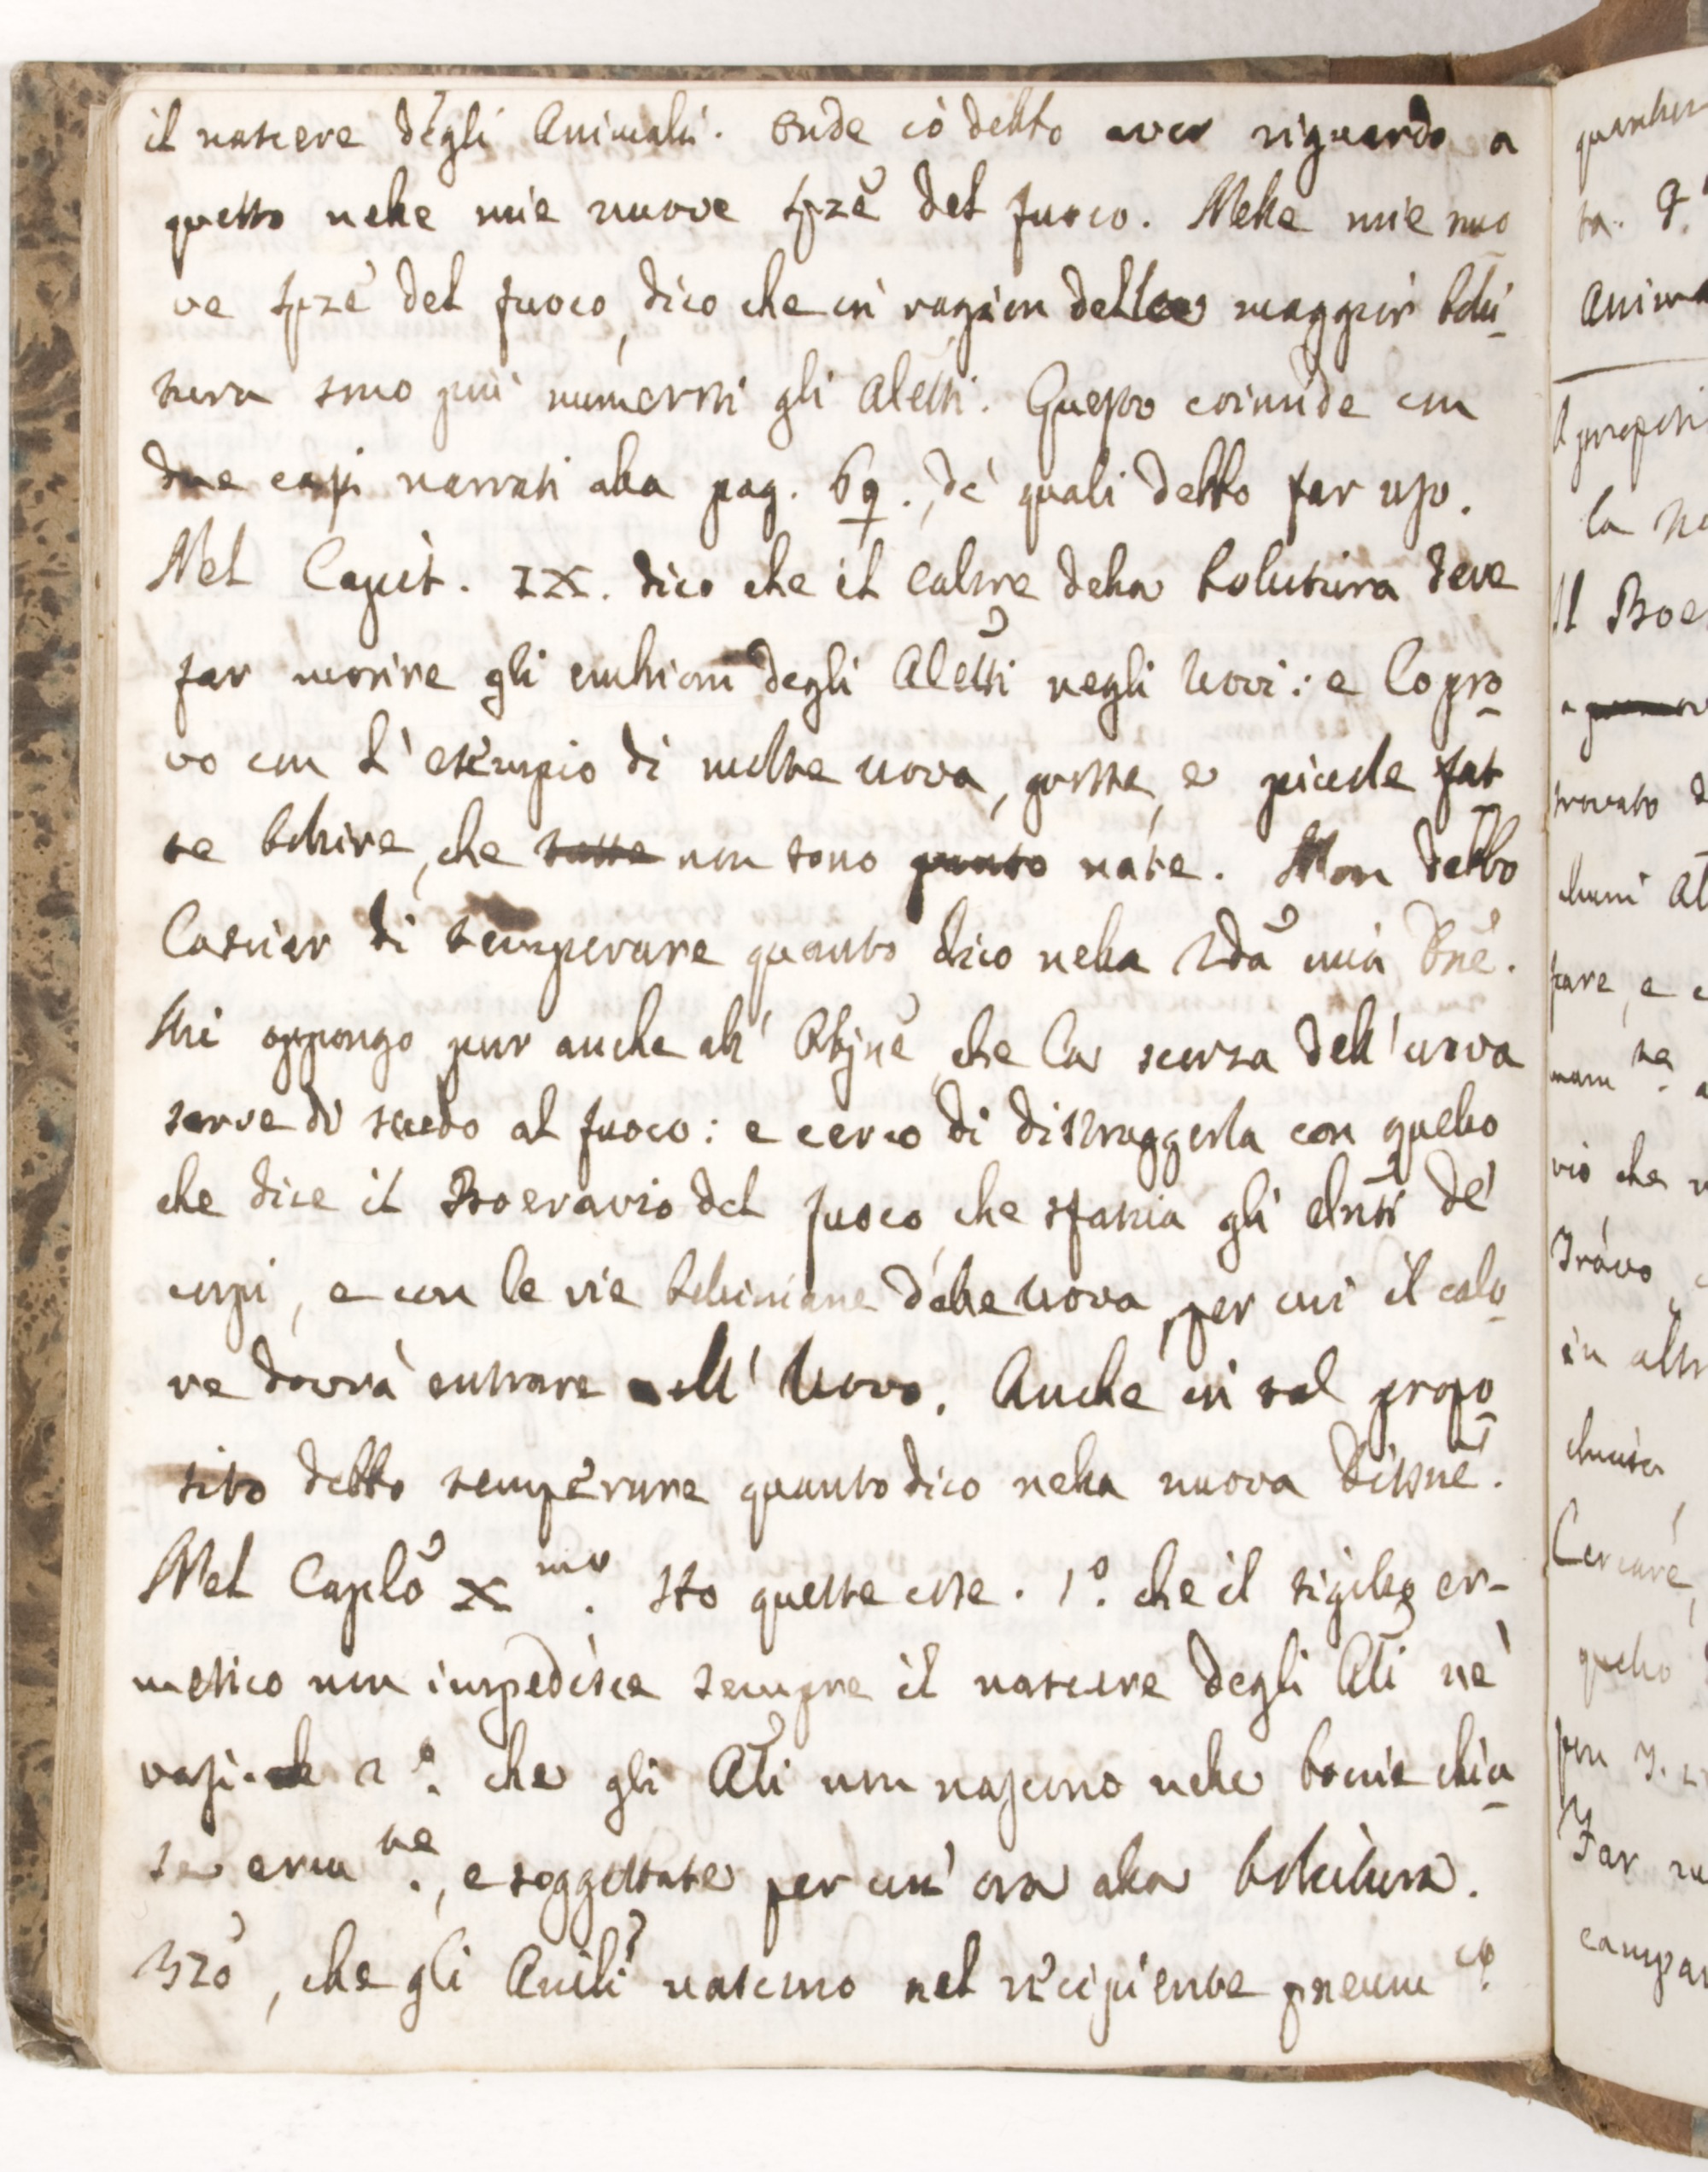 il nascere degli Animali. Onde iò debbo aver riguardo a
questo nelle mie nuove spzẽ del fuoco. Nelle mie nuo
ve spzẽ del fuoco, dico che in ragion della maggior bolli
tura sono più numerosi gli aletti. Questo coincide con
due casi narrati alla pag. 69., de' quali debbo far uso.
Nel Capit. IX. dico che il calore della bollitura deve
far morire gli embrioni degli aletti negli Uovi: e lo pro
vo con l'esempio di molte uova, grosse, e piccole fat
te bollire, che tutte non sono punto nate. Non debbo
lasciar di temperare quanto dico nella 2dã mia Dnẽ.
Mi oppongo pur anche all' Objnẽ, che la scorza dell'uova
serve di scudo al fuoco: e cerco di distruggerla con quello
che dice il Boeravio del fuoco, che sfascia gli elnti de'
corpi, e con le vie belliniane delle uova, per cui il calo
re dovrà entrare nell' Uovo. Anche in tal propo
sito debbo temperare quanto dico nella nuova Ditsnẽ.
Nel Caplõ X mo. Sto queste cose. 1º. che il sigillo er-
metico non impedisce sempre il nascere degli Ali ne'
vasi. 2º. che gli Ali non nascono nelle boccie chiu
se erm te., e soggettate per un' ora alla bollitura.
3zõ, che gli Anili nascono nel recipiente pneum co.
quantun
ta.
Anima
A propositi
la
Il Boe
a
trovato d
cluni
pare, e
mam te. a
vio che
Travo
in altr
chiusa
Cercare,
quello
Far
campan